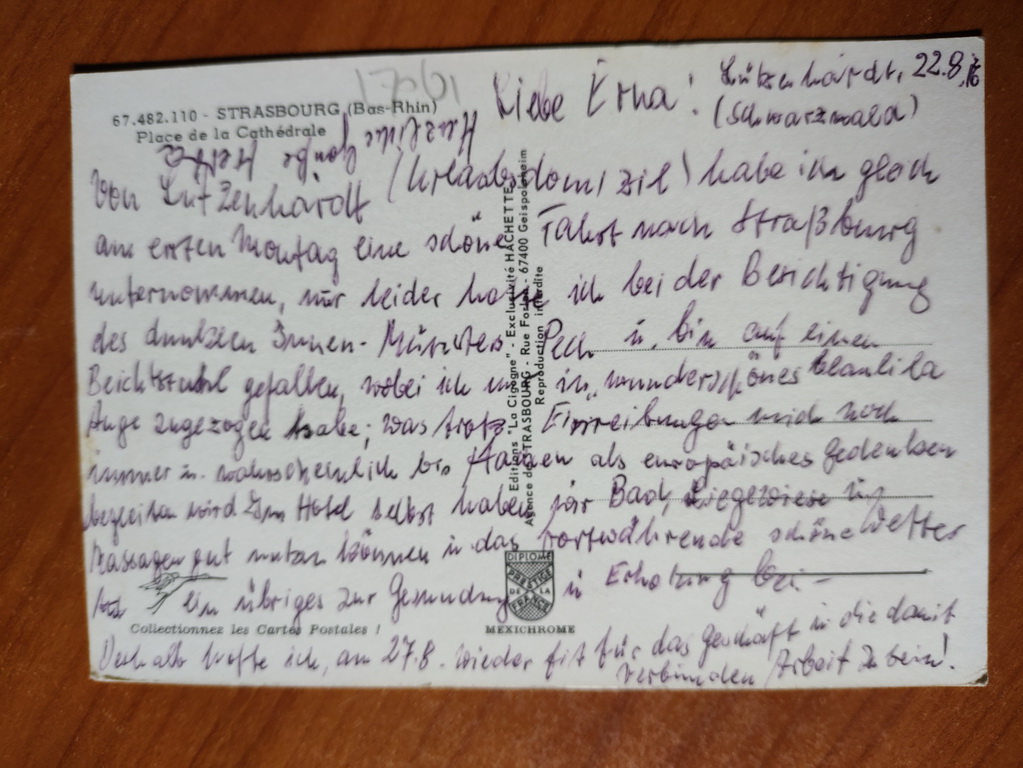 67.482.110 - STRASBOURG (Bas-Rhin)
Place de la Cathédrale
Liebe Erna! Lützenhardt, 22.8.
(Schwarzwald)
Herzliche Grüße
Von Lützenhardt (Urlaubsdomizil) habe ich gleich
am ersten Montag eine schöne Fahrt nach Straßburg
unternommen, nur leider habe ich bei der Besichtigung
des dunklen Innen-Münsters Pech u. bin auf einen
Beichtstuhl gefallen, wobei ich mir ein wunderschönes blaulila
Auge zugezogen habe; was trotz Einreibungen mich noch
immer u. wahrscheinlich bis als europäisches Gedenken
begleiten wird. Im Hotel selbst haben wir Bad, Liegewiese u.
Massagen gut nutzen können u. das fortwährende schöne Wetter
ein übriges zur Gesundung u. Erholung bei-
Collectionnez les Cartes Postales !
Deshalb hoffe ich, am 27.8. wieder fit für das Geschäft u. die damit
verbunden Arbeit zu sein!
Editions "La Cigogne" - Exclusivité HACHETTE
Agence de STRASBOURG - Rue - 67400 Geispolsheim
Reproduction interdite
DIPLOME
PRESTIGE
DE LA
FRANCE
MEXICHROME